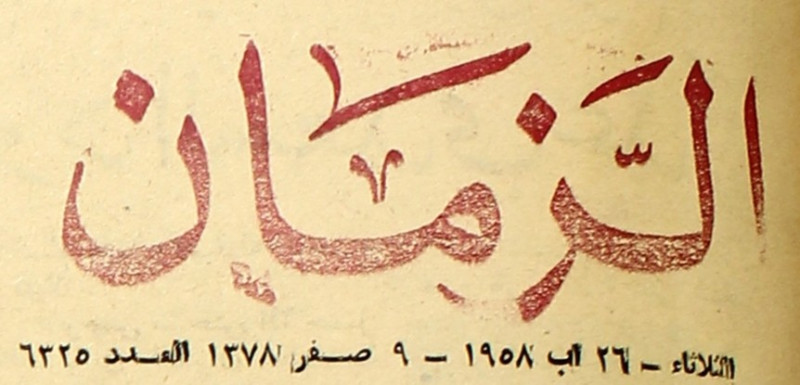 الزّمان
الثلاثاء - ٢٦ اب ١٩٥٨ - ٩ صفر ١٣٧٨ العدد ٦٣٢٥